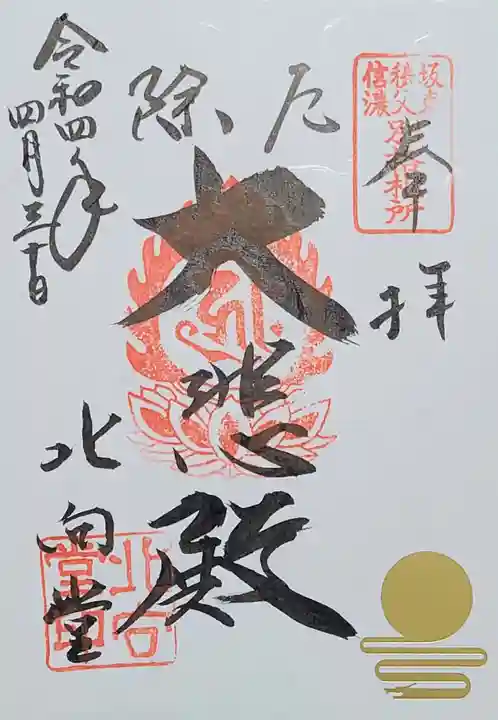 坂東
秩父
信濃
別格札所
奉拝
厄除
大悲殿
北向堂
令和四年
四月三十日
北向
堂印